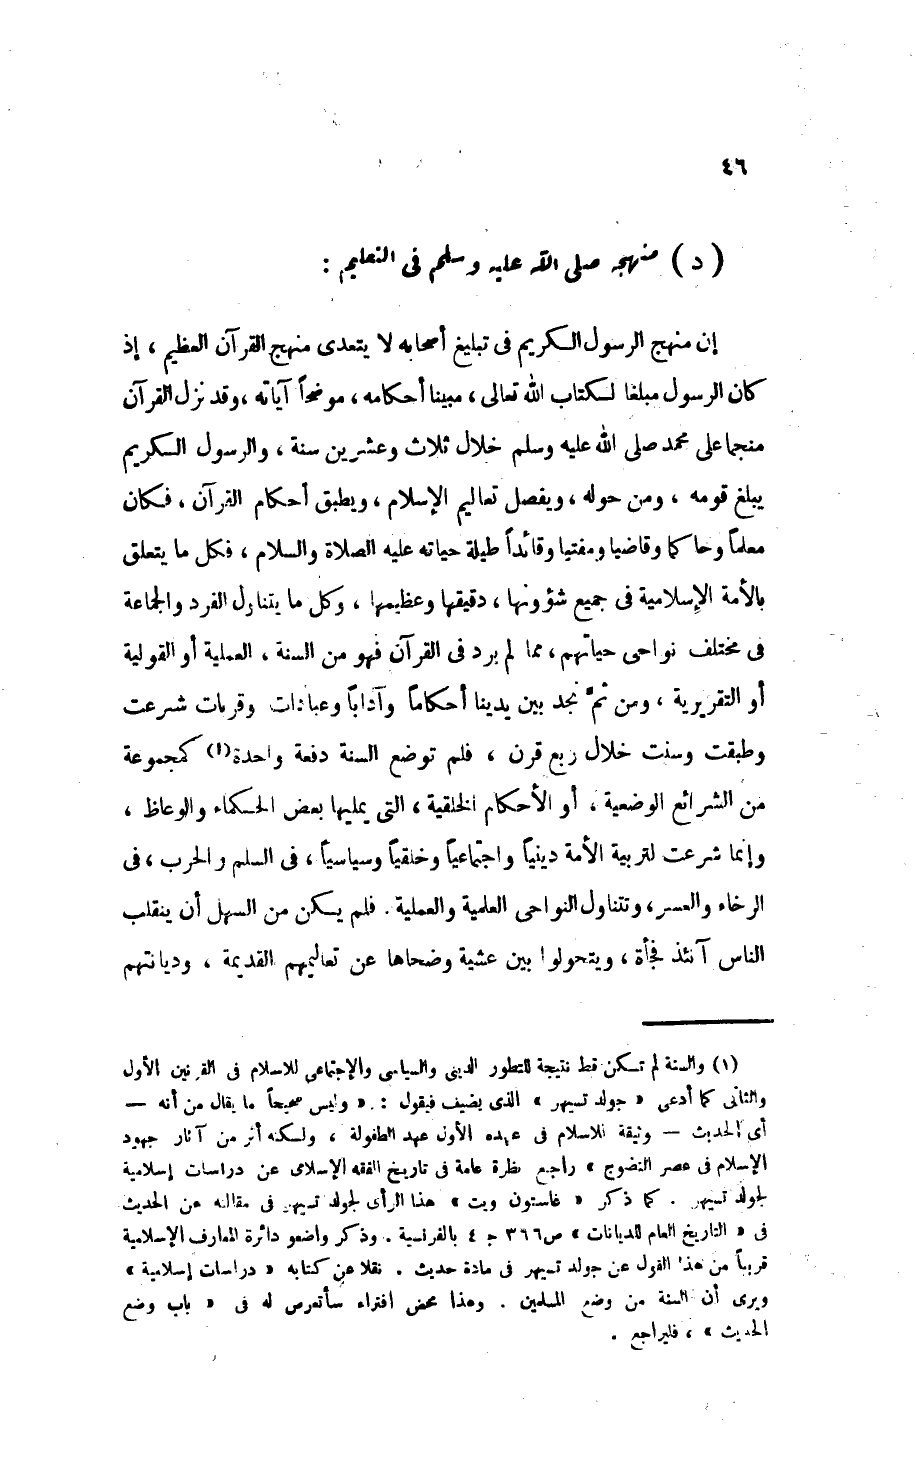 ٤٦
( د ) منهجه صلى الله عليه وسلم فى التعليم :
إن منهج الرسول الكريم فى تبليغ أصحابه لا يتعدى منهج القرآن العظيم ، إذ
كان الرسول مبلغا لكتاب الله تعالى ، مبينا أحكامه ، موضحاً آياته ، وقد نزل القرآن
منجما على محمد صلى الله عليه وسلم خلال ثلاث وعشرين سنة ، والرسول الكريم
يبلغ قومه ، ومن حوله ، ويفصل تعاليم الإسلام ، ويطبق أحكام القرآن ، فكان
معلماً وحاكما وقاضيا ومفتيا وقائداً طيلة حياته عليه الصلاة والسلام ، فكل ما يتعلق
بالأمة الإسلامية فى جميع شؤونها ، دقيقها وعظيمها ، وكل ما يتناول الفرد والجماعة
فى مختلف نواحى حياتهم ، مما لم يرد فى القرآن فهو من السنة ، العملية أو القولية
أو التقريرية ، ومن ثمَّ نجد بين يدينا أحكاماً وآداباً وعبادات وقربات شرعت
وطبقت وسنت خلال ربع قرن ، فلم توضع السنة دفعة واحدة(١) كمجموعة
من الشرائع الوضعية ، أو الأحكام الخلقية ، التى يمليها بعض الحكماء والوعاظ ،
وإنما شرعت لتربية الأمة دينياً واجتماعياً وخلقياً وسياسياً ، فى السلم والحرب ، فى
الرخاء والعسر ، وتتناول النواحى العلمية والعملية . فلم يكن من السهل أن ينقلب
الناس آنئذ فجأة ، ويتحولوا بين عشية وضحاها عن تعاليمهم القديمة ، ودياناتهم
(١) والسنة لم تكن قط نتيجة للتطور الدينى والسياسى والإجتماعى للاسلام فى القرنين الأول
والثانى كما أدعى « جولد تسيهر » الذى يضيف فيقول : « وليس صحيحاً ما يقال من أنه —
أى الحديث — وثيقة للاسلام فى عهده الأول عهد الطفولة ، ولكنه أثر من آثار جهود
الإسلام فى عصر النضوج » راجع نظرة عامة فى تاريخ الفقه الإسلامى عن دراسات إسلامية
لجولد تسيهر . كما ذكر « غاستون ويت » هذا الرأى لجولد تسيهر فى مقاله عن الحديث
فى « التاريخ العام للديانات » ص٣٦٦ ج ٤ بالفرنسية . وذكر واضعو دائرة المعارف الإسلامية
قريباً من هذا القول عن جولد تسيهر فى مادة حديث . نقلا عن كتابه « دراسات إسلامية »
ويرى أن السنة من وضع المسلمين . وهذا محض افتراء سأتعرض له فى « باب وضع
الحديث » ، فليراجع .